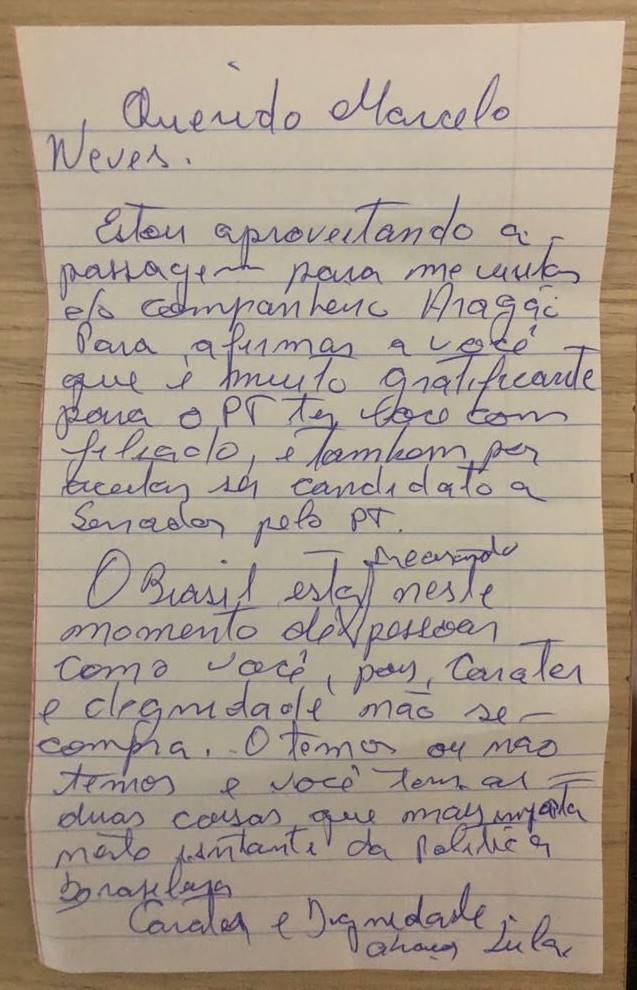 Querido Marcelo
Neves.
Estou aproveitando a
passagem para me
e/o companheiro Aragão
Para afirmar a você
que é muito gratificante
para o PT ter voce com
filiado, e tambem por
aceitar ser candidato a
Senador pelo PT.
precisando
O Brasil está neste
momento de pessoas
como você, pois, Carater
e dignidade não se
compra. O temos ou não
temos e você tem as
duas coisas que mais
neste da politica
brasileira
Carater e Dignidade
abraços Lula